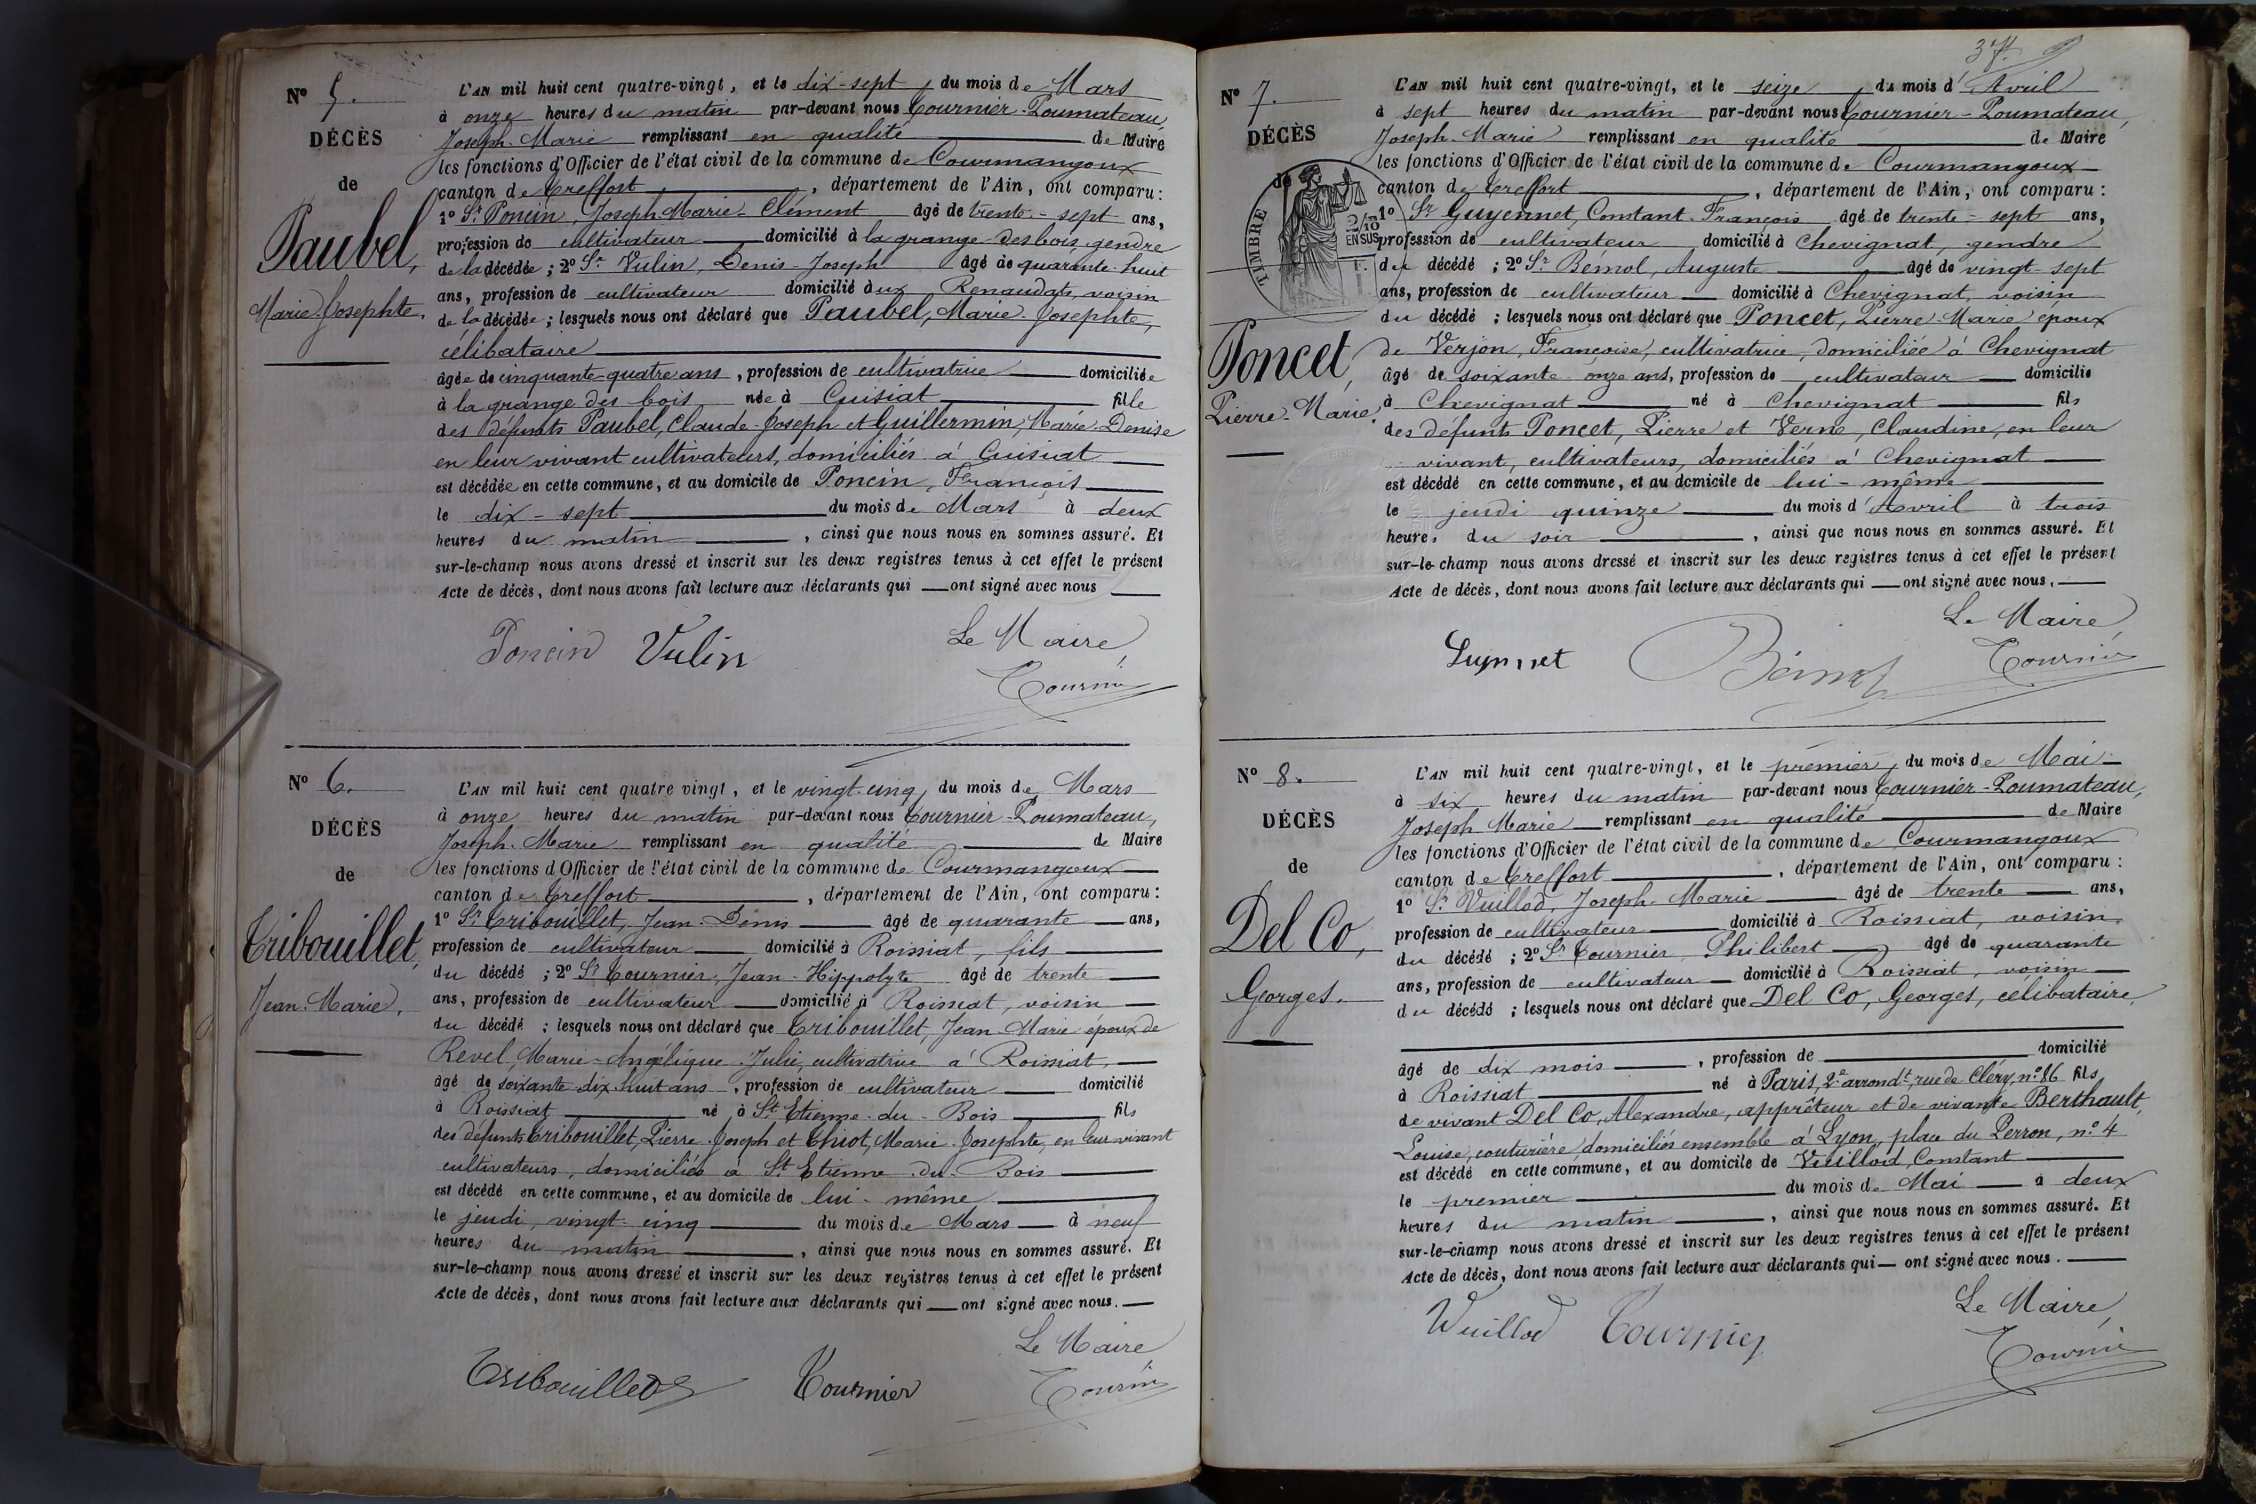 Nº 5.
DÉCÈS
de
Paubel,
Marie-Josephte.
L'AN mil huit cent quatre-vingt, et le dix-sept du mois de Mars
à onze heures du matin par-devant nous Tournier-Poumateau,
Joseph-Marie remplissant en qualité de Maire
les fonctions d'Officier de l'état civil de la commune de Courmangoux
canton de Treffort, département de l'Ain, ont comparu :
1º Sr Poncin, Joseph Marie-Clément âgé de trente-sept ans,
profession de cultivateur domicilié à la grange des bois, gendre
de la décédée ; 2º Sr Vulin, Denis-Joseph âgé de quarante-huit
ans, profession de cultivateur domicilié aux Renaudats, voisin
de la décédée ; lesquels nous ont déclaré que Paubel, Marie-Josephte,
célibataire
âgée de cinquante-quatre ans, profession de cultivatrice domiciliée
à la grange des bois née à Cuisiat fille
des défunts Paubel, Claude-Joseph et Guillermin, Marie-Denise
en leur vivant cultivateurs, domiciliés à Cuisiat
est décédée en cette commune, et au domicile de Poncin, François
le dix-sept du mois de Mars à deux
heures du matin, ainsi que nous nous en sommes assuré. Et
sur-le-champ nous avons dressé et inscrit sur les deux registres tenus à cet effet le présent
Acte de décès, dont nous avons fait lecture aux déclarants qui ont signé avec nous
Le Maire,
Poncin Vulin
Tournier
Nº 6.
DÉCÈS
de
Tribouillet,
Jean-Marie.
L'AN mil huit cent quatre vingt, et le vingt-cinq, du mois de Mars
à onze heures du matin par-devant nous Tournier-Poumateau,
Joseph-Marie remplissant en qualité de Maire
les fonctions d'Officier de l'état civil de la commune de Courmangoux
canton de Treffort, département de l'Ain, ont comparu :
1º Sr Tribouillet, Jean-Denis âgé de quarante ans,
profession de cultivateur domicilié à Roissiat, fils
du décédé ; 2º Sr Tournier, Jean-Hippolyte âgé de trente
ans, profession de cultivateur domicilié à Roissiat, voisin
du décédé ; lesquels nous ont déclaré que Tribouillet, Jean-Marie époux de
Revel, Marie-Angélique-Julie, cultivatrice à Roissiat,
âgé de soixante-dix-huit ans, profession de cultivateur domicilié
à Roissiat né à St Etienne-du-Bois fils
des défunts Tribouillet, Pierre-Joseph et Thiot, Marie-Josephte, en leur vivant
cultivateurs, domiciliés à St Etienne-du-Bois
est décédé en cette commune, et au domicile de lui-même
le jeudi, vingt-cinq du mois de Mars à neuf
heures du matin, ainsi que nous nous en sommes assuré. Et
sur-le-champ nous avons dressé et inscrit sur les deux registres tenus à cet effet le présent
Acte de décès, dont nous avons fait lecture aux déclarants qui ont signé avec nous.
Le Maire
Tribouillet Tournier
Tournier
37.
Nº 7.
DÉCÈS
de
TIMBRE
2/10
EN SUS
Poncet,
Pierre-Marie.
L'AN mil huit cent quatre-vingt, et le seize, du mois d'Avril
à sept heures du matin par-devant nous Tournier-Poumateau,
Joseph-Marie remplissant en qualité de Maire
les fonctions d'Officier de l'état civil de la commune de Courmangoux
canton de Treffort, département de l'Ain, ont comparu :
1º Sr Guyennet, Constant-François âgé de trente-sept ans,
profession de cultivateur domicilié à Chevignat, gendre
du décédé ; 2º Sr Bémol, Auguste âgé de vingt-sept
ans, profession de cultivateur domicilié à Chevignat, voisin
du décédé ; lesquels nous ont déclaré que Poncet, Pierre-Marie époux
de Verjon, Françoise, cultivatrice, domiciliée à Chevignat
âgé de soixante-onze ans, profession de cultivateur domicilié
à Chevignat né à Chevignat fils
des défunts Poncet, Pierre et Verne, Claudine, en leur
vivant, cultivateurs, domiciliés à Chevignat
est décédé en cette commune, et au domicile de lui-même
le jeudi quinze du mois d'Avril à trois
heures du soir, ainsi que nous nous en sommes assuré. Et
sur-le-champ nous avons dressé et inscrit sur les deux registres tenus à cet effet le présent
Acte de décès, dont nous avons fait lecture aux déclarants qui ont signé avec nous.
Le Maire,
Bémol
Tournier
Nº 8.
DÉCÈS
de
Del Co,
Georges.
L'AN mil huit cent quatre-vingt, et le premier, du mois de Mai
à six heures du matin par-devant nous Tournier-Poumateau,
Joseph-Marie remplissant en qualité de Maire
les fonctions d'Officier de l'état civil de la commune de Courmangoux
canton de Treffort, département de l'Ain, ont comparu :
1º Sr Vuillod, Joseph-Marie âgé de trente ans,
profession de cultivateur domicilié à Roissiat, voisin
du décédé ; 2º Sr Tournier, Philibert âgé de quarante
ans, profession de cultivateur domicilié à Roissiat, voisin
du décédé ; lesquels nous ont déclaré que Del Co, Georges, célibataire,
âgé de dix mois, profession de domicilié
à Roissiat né à Paris, 2e arrondt, rue de Cléry, nº 86 fils
de vivant Del Co, Alexandre, apprêteur et de vivante Berthault,
Louise, couturière, domiciliés ensemble à Lyon, place du Perron, nº 4
est décédé en cette commune, et au domicile de Vuillod, Constant
le premier du mois de Mai à deux
heures du matin, ainsi que nous nous en sommes assuré. Et
sur-le-champ nous avons dressé et inscrit sur les deux registres tenus à cet effet le présent
Acte de décès, dont nous avons fait lecture aux déclarants qui ont signé avec nous.
Le Maire,
Vuillod Tournier
Tournier